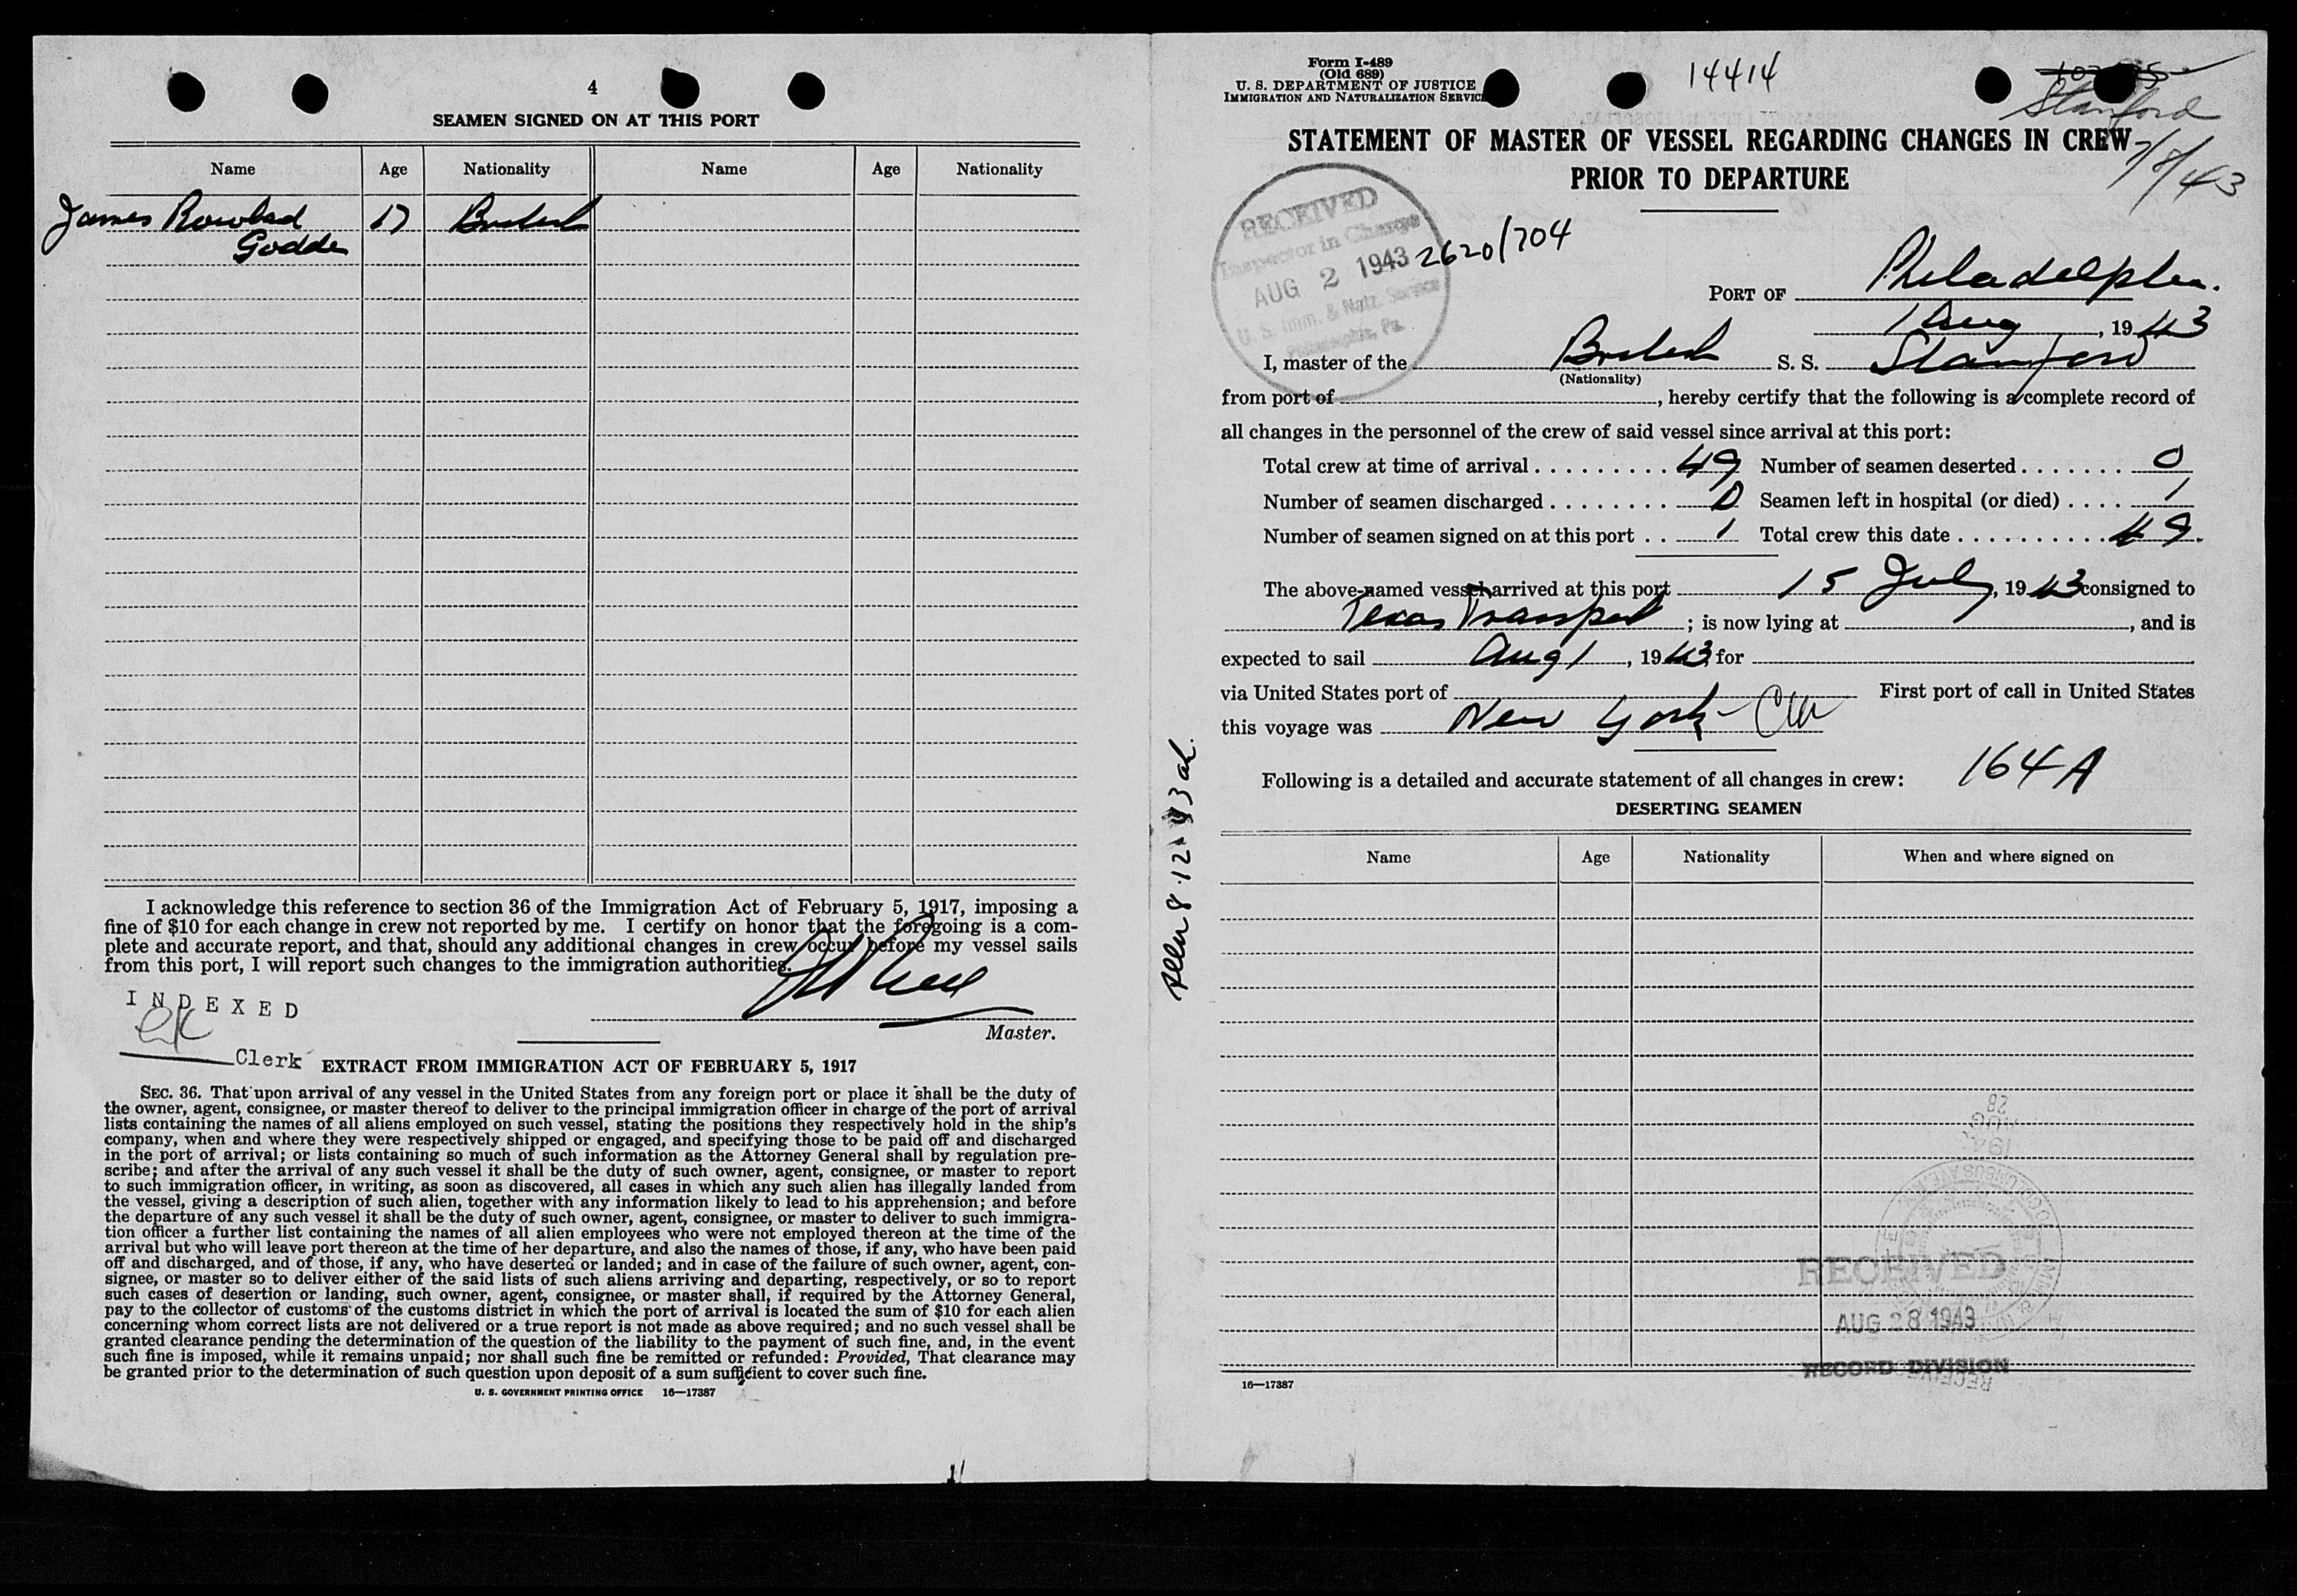 4
SEAMEN SIGNED ON AT THIS PORT
Name Age Nationality Name Age Nationality
James Rowland 17 British
Godden
I acknowledge this reference to section 36 of the Immigration Act of February 5, 1917, imposing a
fine of $10 for each change in crew not reported by me. I certify on honor that the foregoing is a com-
plete and accurate report, and that, should any additional changes in crew occur before my vessel sails
from this port, I will report such changes to the immigration authorities.
Master.
INDEXED
Clerk
EXTRACT FROM IMMIGRATION ACT OF FEBRUARY 5, 1917
SEC. 36. That upon arrival of any vessel in the United States from any foreign port or place it shall be the duty of
the owner, agent, consignee, or master thereof to deliver to the principal immigration officer in charge of the port of arrival
lists containing the names of all aliens employed on such vessel, stating the positions they respectively hold in the ship's
company, when and where they were respectively shipped or engaged, and specifying those to be paid off and discharged
in the port of arrival; or lists containing so much of such information as the Attorney General shall by regulation pre-
scribe; and after the arrival of any such vessel it shall be the duty of such owner, agent, consignee, or master to report
to such immigration officer, in writing, as soon as discovered, all cases in which any such alien has illegally landed from
the vessel, giving a description of such alien, together with any information likely to lead to his apprehension; and before
the departure of any such vessel it shall be the duty of such owner, agent, consignee, or master to deliver to such immigra-
tion officer a further list containing the names of all alien employees who were not employed thereon at the time of the
arrival but who will leave port thereon at the time of her departure, and also the names of those, if any, who have been paid
off and discharged, and of those, if any, who have deserted or landed; and in case of the failure of such owner, agent, con-
signee, or master so to deliver either of the said lists of such aliens arriving and departing, respectively, or so to report
such cases of desertion or landing, such owner, agent, consignee, or master shall, if required by the Attorney General,
pay to the collector of customs of the customs district in which the port of arrival is located the sum of $10 for each alien
concerning whom correct lists are not delivered or a true report is not made as above required; and no such vessel shall be
granted clearance pending the determination of the question of the liability to the payment of such fine, and, in the event
such fine is imposed, while it remains unpaid; nor shall such fine be remitted or refunded: Provided, That clearance may
be granted prior to the determination of such question upon deposit of a sum sufficient to cover such fine.
U. S. GOVERNMENT PRINTING OFFICE 16—17387
Form I-489
(Old 689)
U. S. DEPARTMENT OF JUSTICE
IMMIGRATION AND NATURALIZATION SERVICE
14414
Stanford
7/8/43
STATEMENT OF MASTER OF VESSEL REGARDING CHANGES IN CREW
PRIOR TO DEPARTURE
RECEIVED
Inspector in Charge
AUG 2 1943
U. S. Imm. & Natz. Service
Philadelphia, Pa.
2620/704
PORT OF Philadelphia.
1 Aug, 1943
I, master of the British S. S. Stanford
(Nationality)
from port of , hereby certify that the following is a complete record of
all changes in the personnel of the crew of said vessel since arrival at this port:
Total crew at time of arrival . . . . . . . . . 49 Number of seamen deserted . . . . . . . 0
Number of seamen discharged . . . . . . . . 0 Seamen left in hospital (or died) . . . . 1
Number of seamen signed on at this port . . 1 Total crew this date . . . . . . . . . . 49.
The above-named vessel arrived at this port 15 July, 1943 consigned to
Texas Transport ; is now lying at , and is
expected to sail Aug 1, 1943, for
via United States port of First port of call in United States
this voyage was New York
164A
Following is a detailed and accurate statement of all changes in crew:
DESERTING SEAMEN
Name Age Nationality When and where signed on
RECEIVED
AUG 28 1943
RECORD DIVISION
16—17387